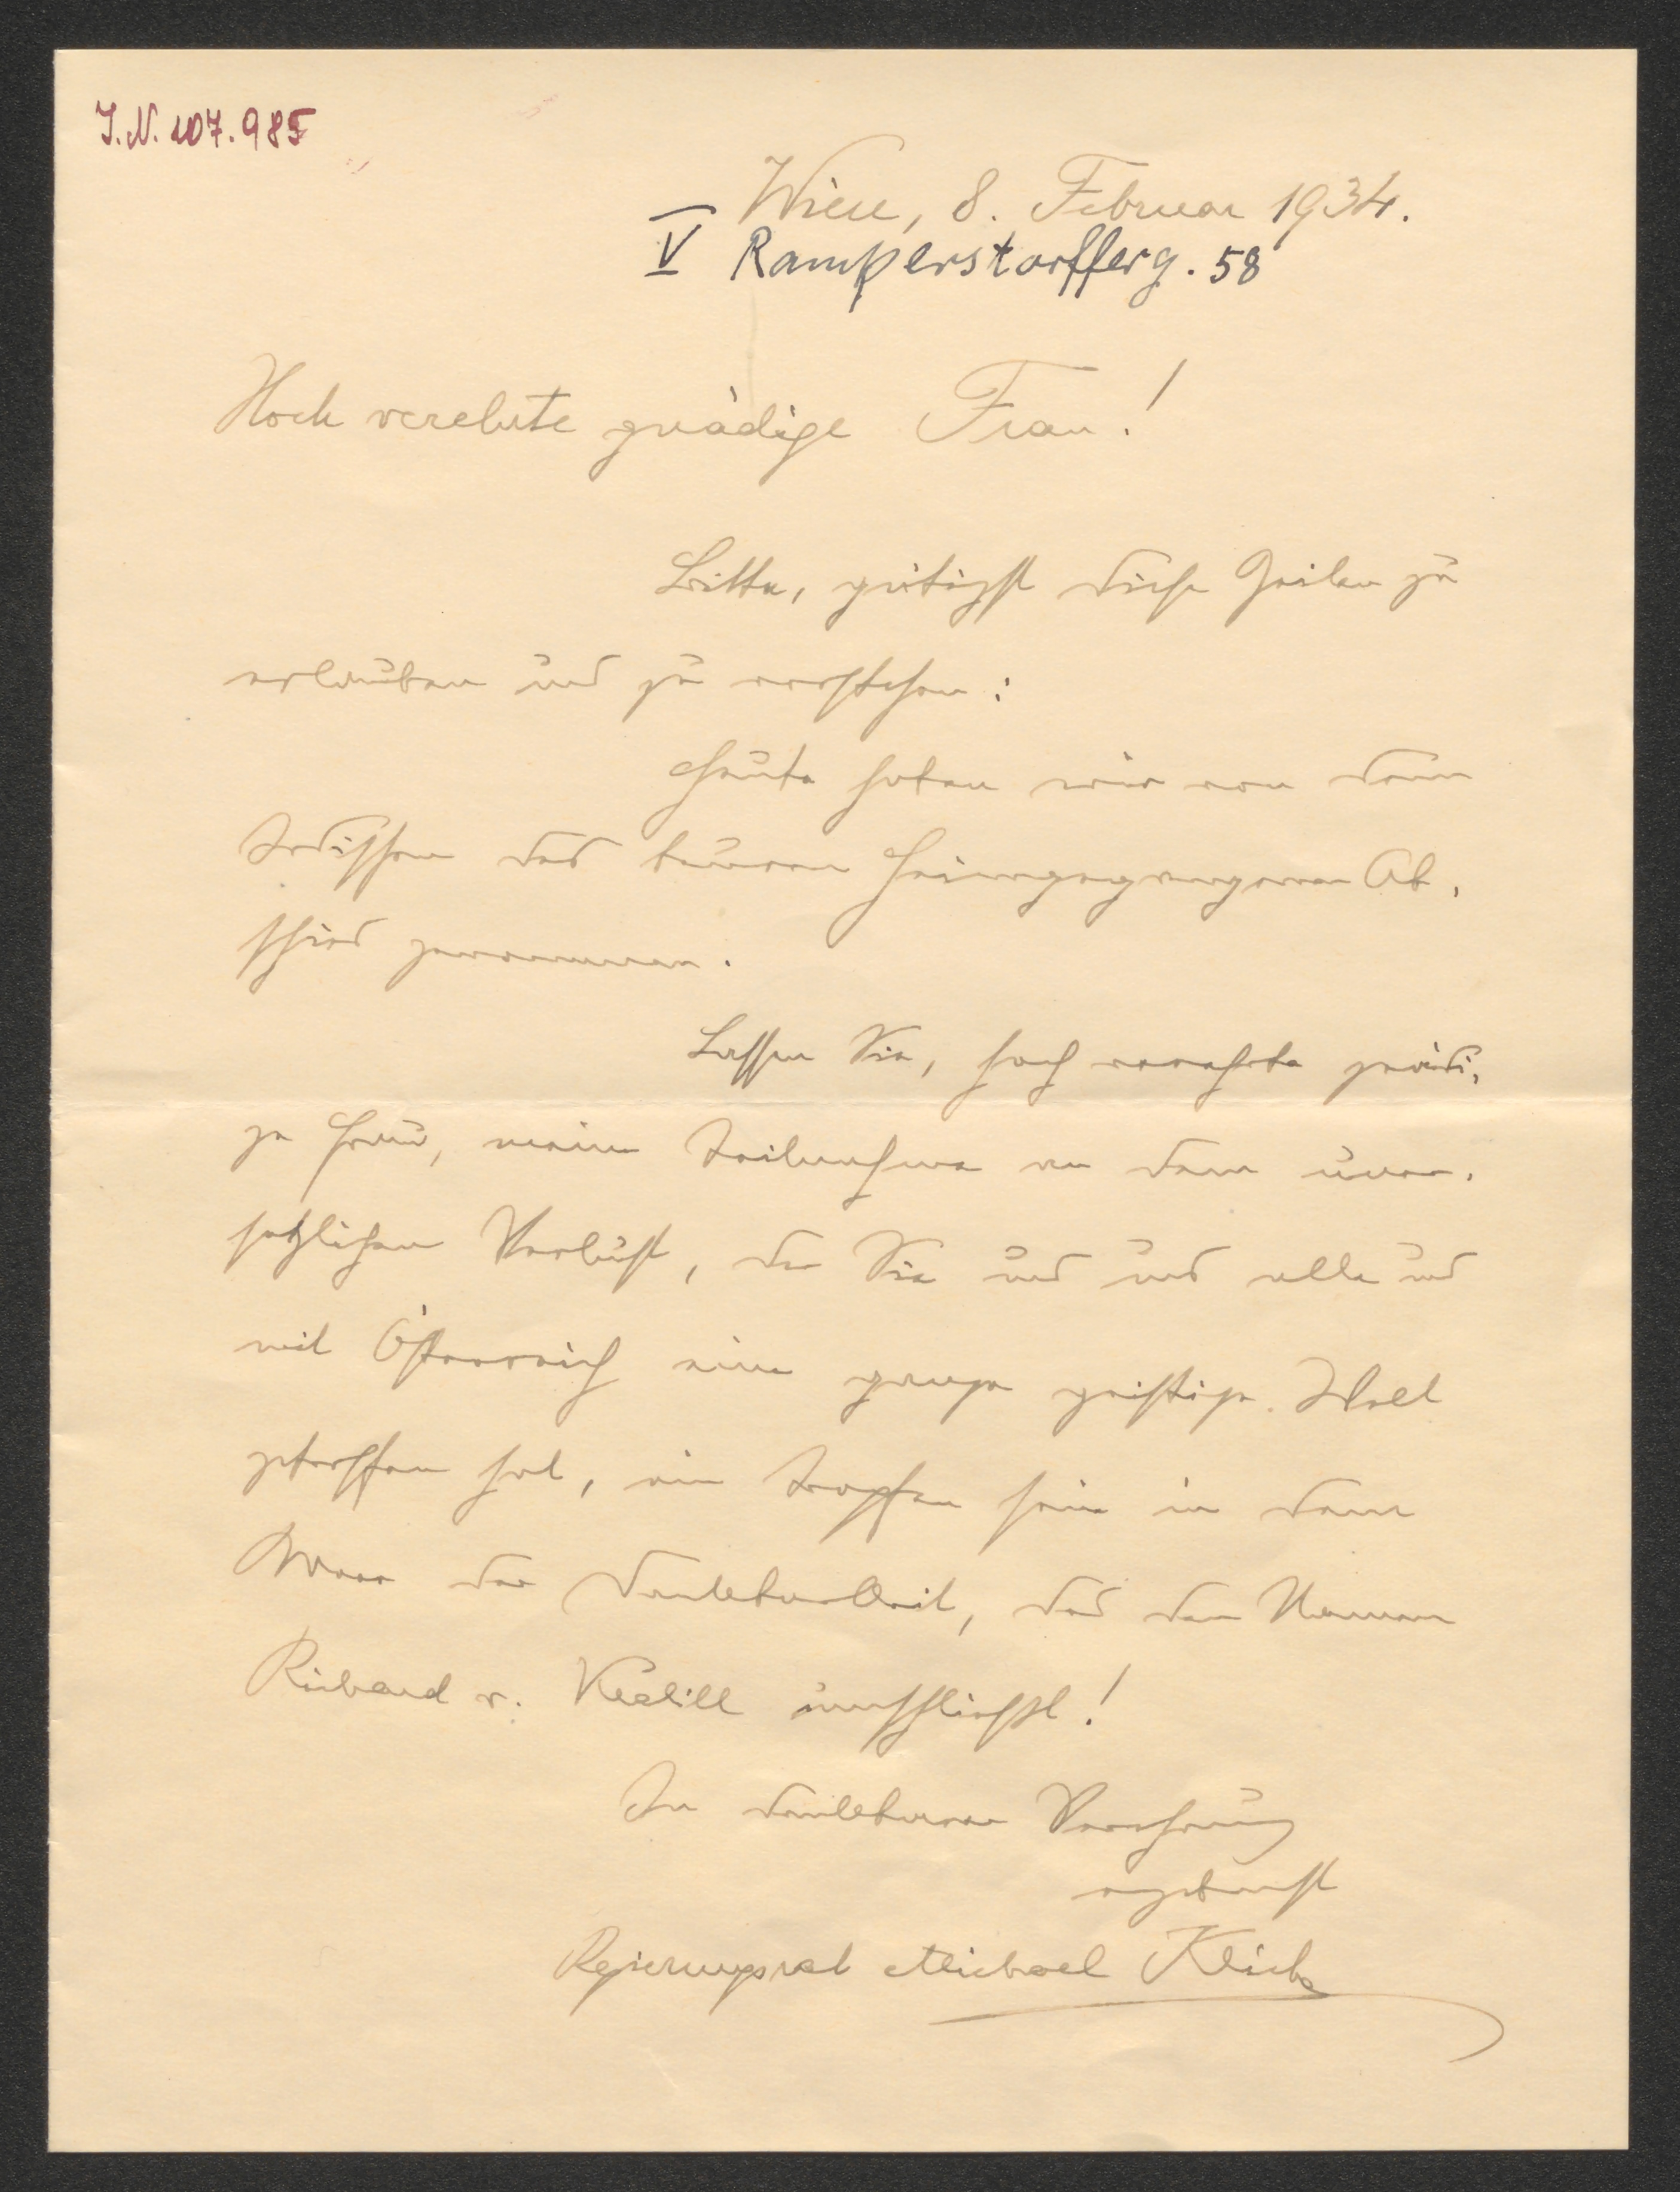 J.N. 107.985
Wien, 8. Februar 1934.
V Ramperstorfferg. 58
Hoch verehrte gnädige Frau!
Bitte, gütigst diese Zeilen zu
erlauben und zu verstehen:
Heute haben wir von dem
Irdischen des teuren Heimgegangenen Ab,
schied genommen.
Lassen Sie, hoch verehrte gnädi,
ge Frau, meine Teilnahme an dem uner,
setzlichen Verlust, der Sie und uns alle und
mit Österreich eine ganze geistige Welt
getroffen hat, ein Tropfen sein in dem
Meer der Dankbarkeit, das den Namen
Richard v. Kralik umschliesst!
In dankbarer Verehrung
ergebenst
Regierungsrat Michael